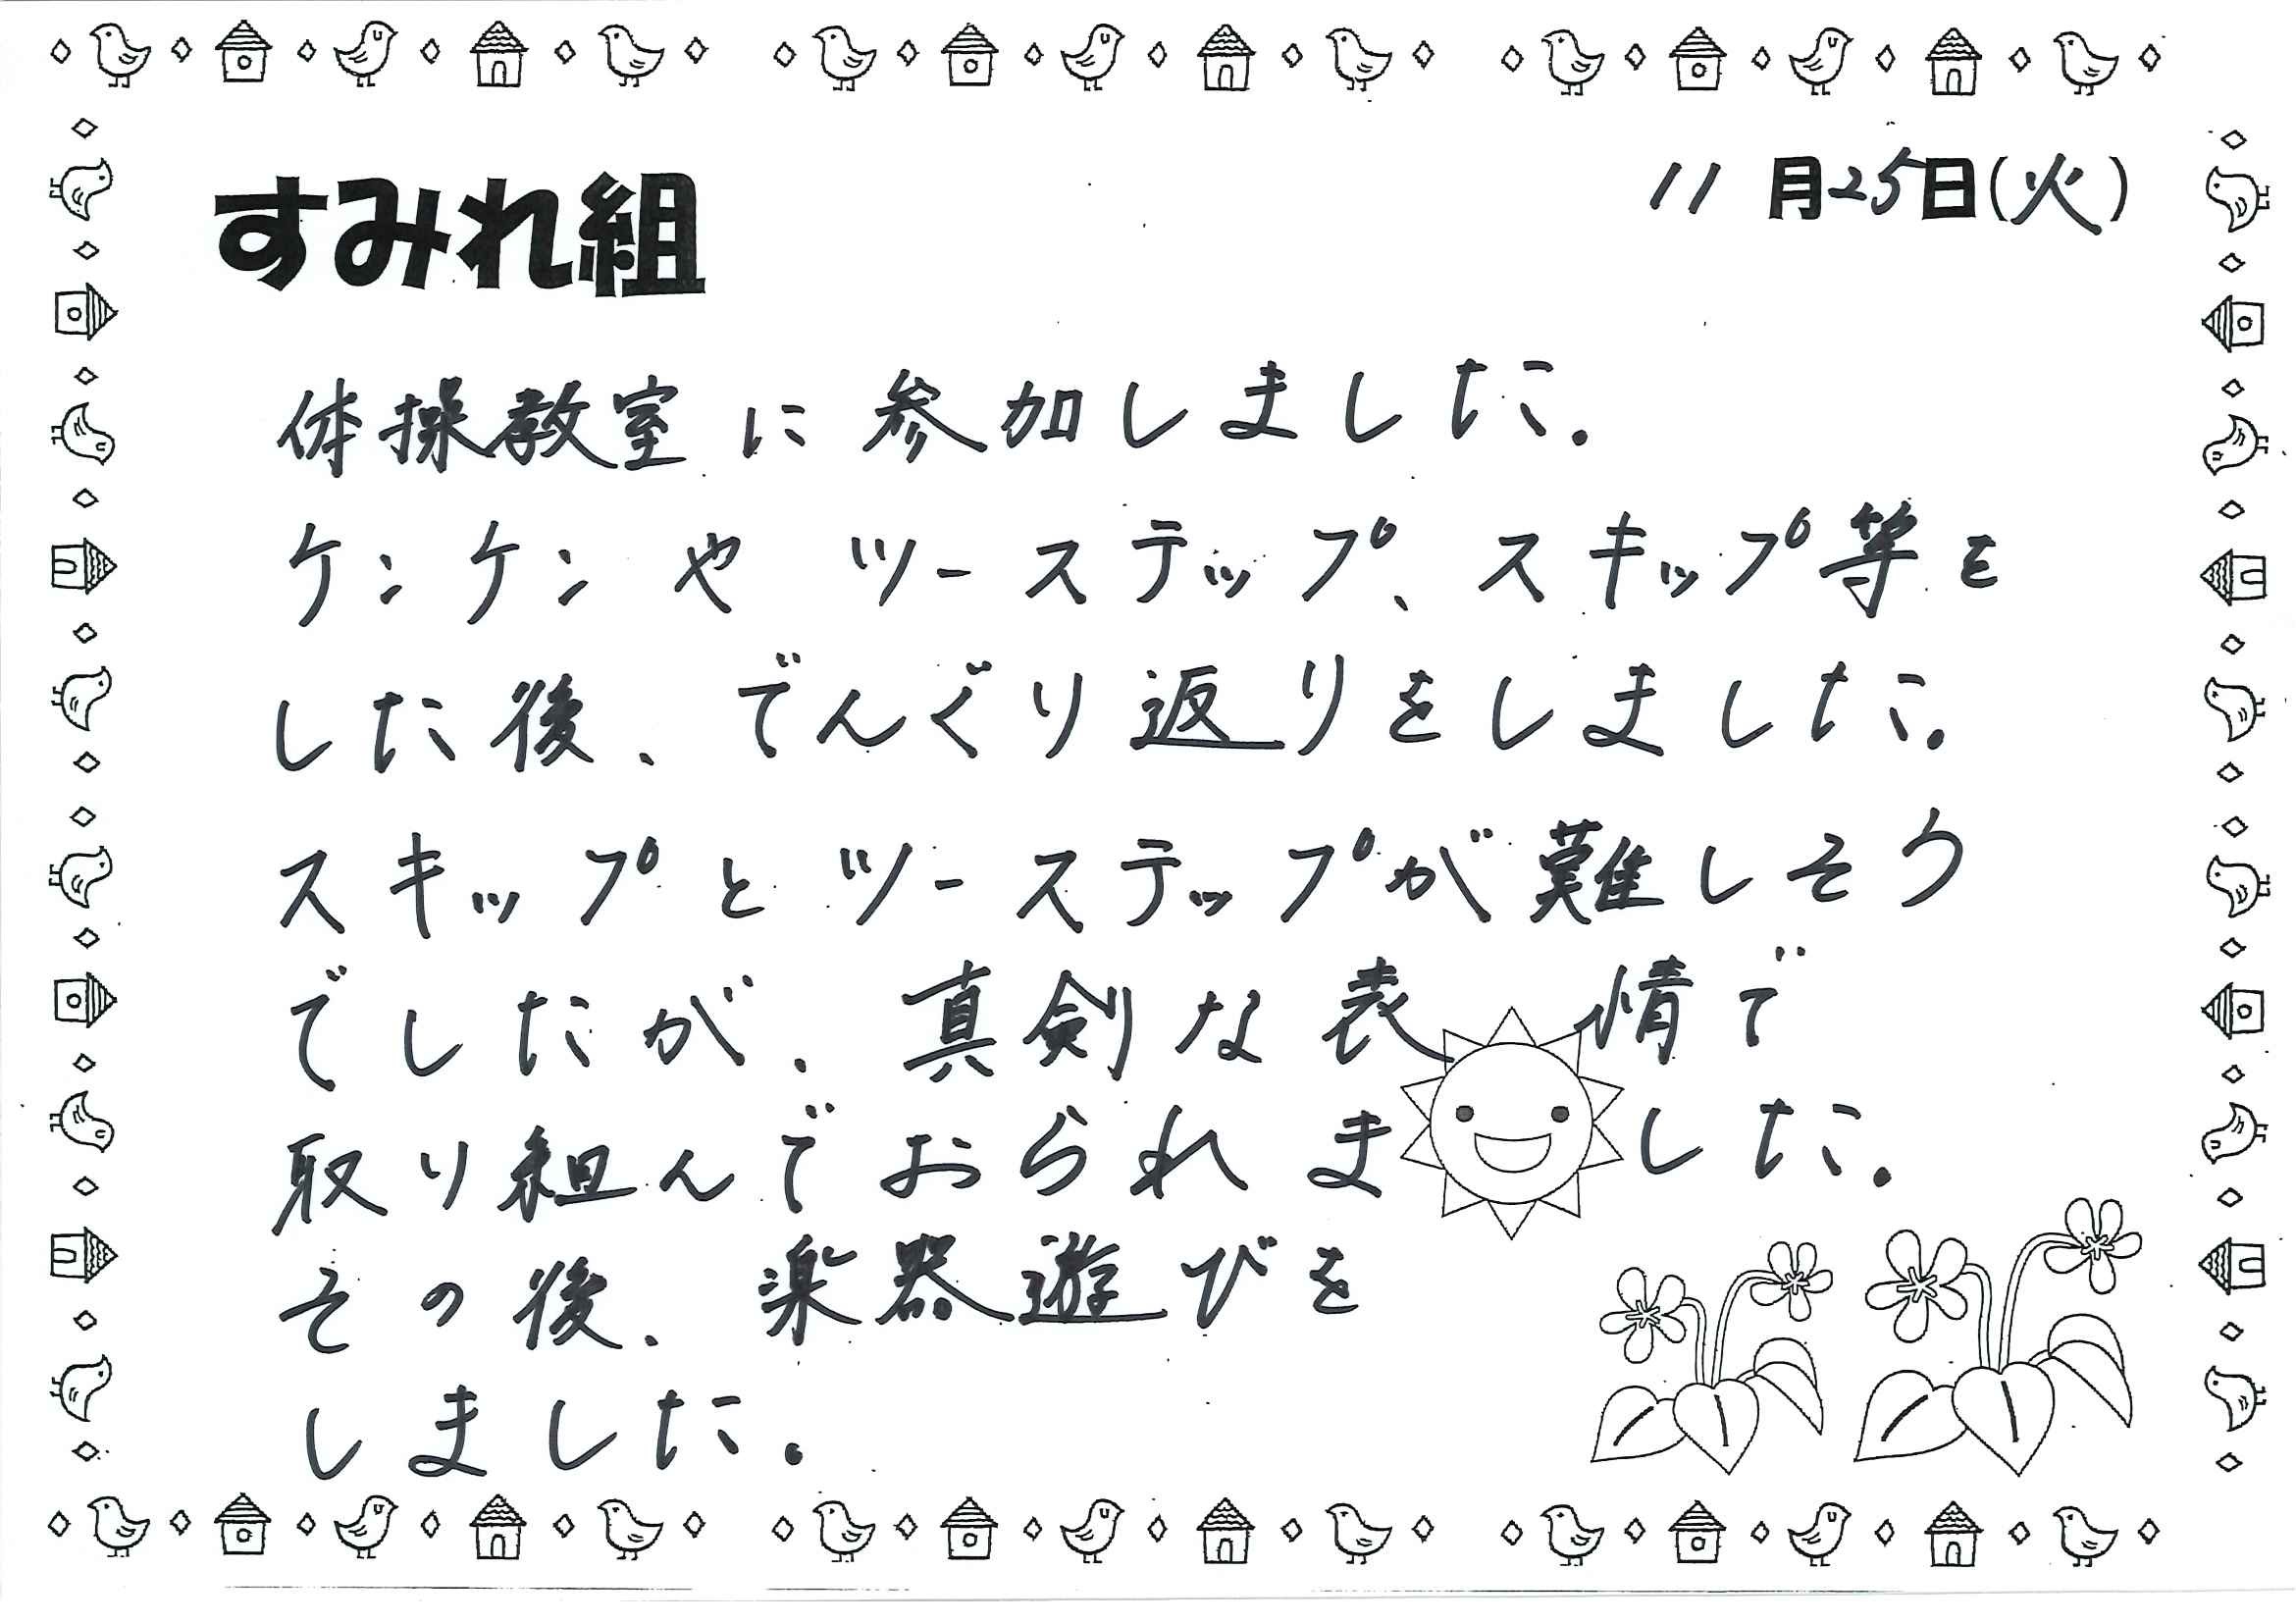 すみれ組
11月25日(火)
体操教室に参加しました。
ケンケンやツーステップ、スキップ等を
した後、でんぐり返りをしました。
スキップとツーステップが難しそう
でしたが、真剣な表情で
取り組んでおられました。
その後、楽器遊びを
しました。